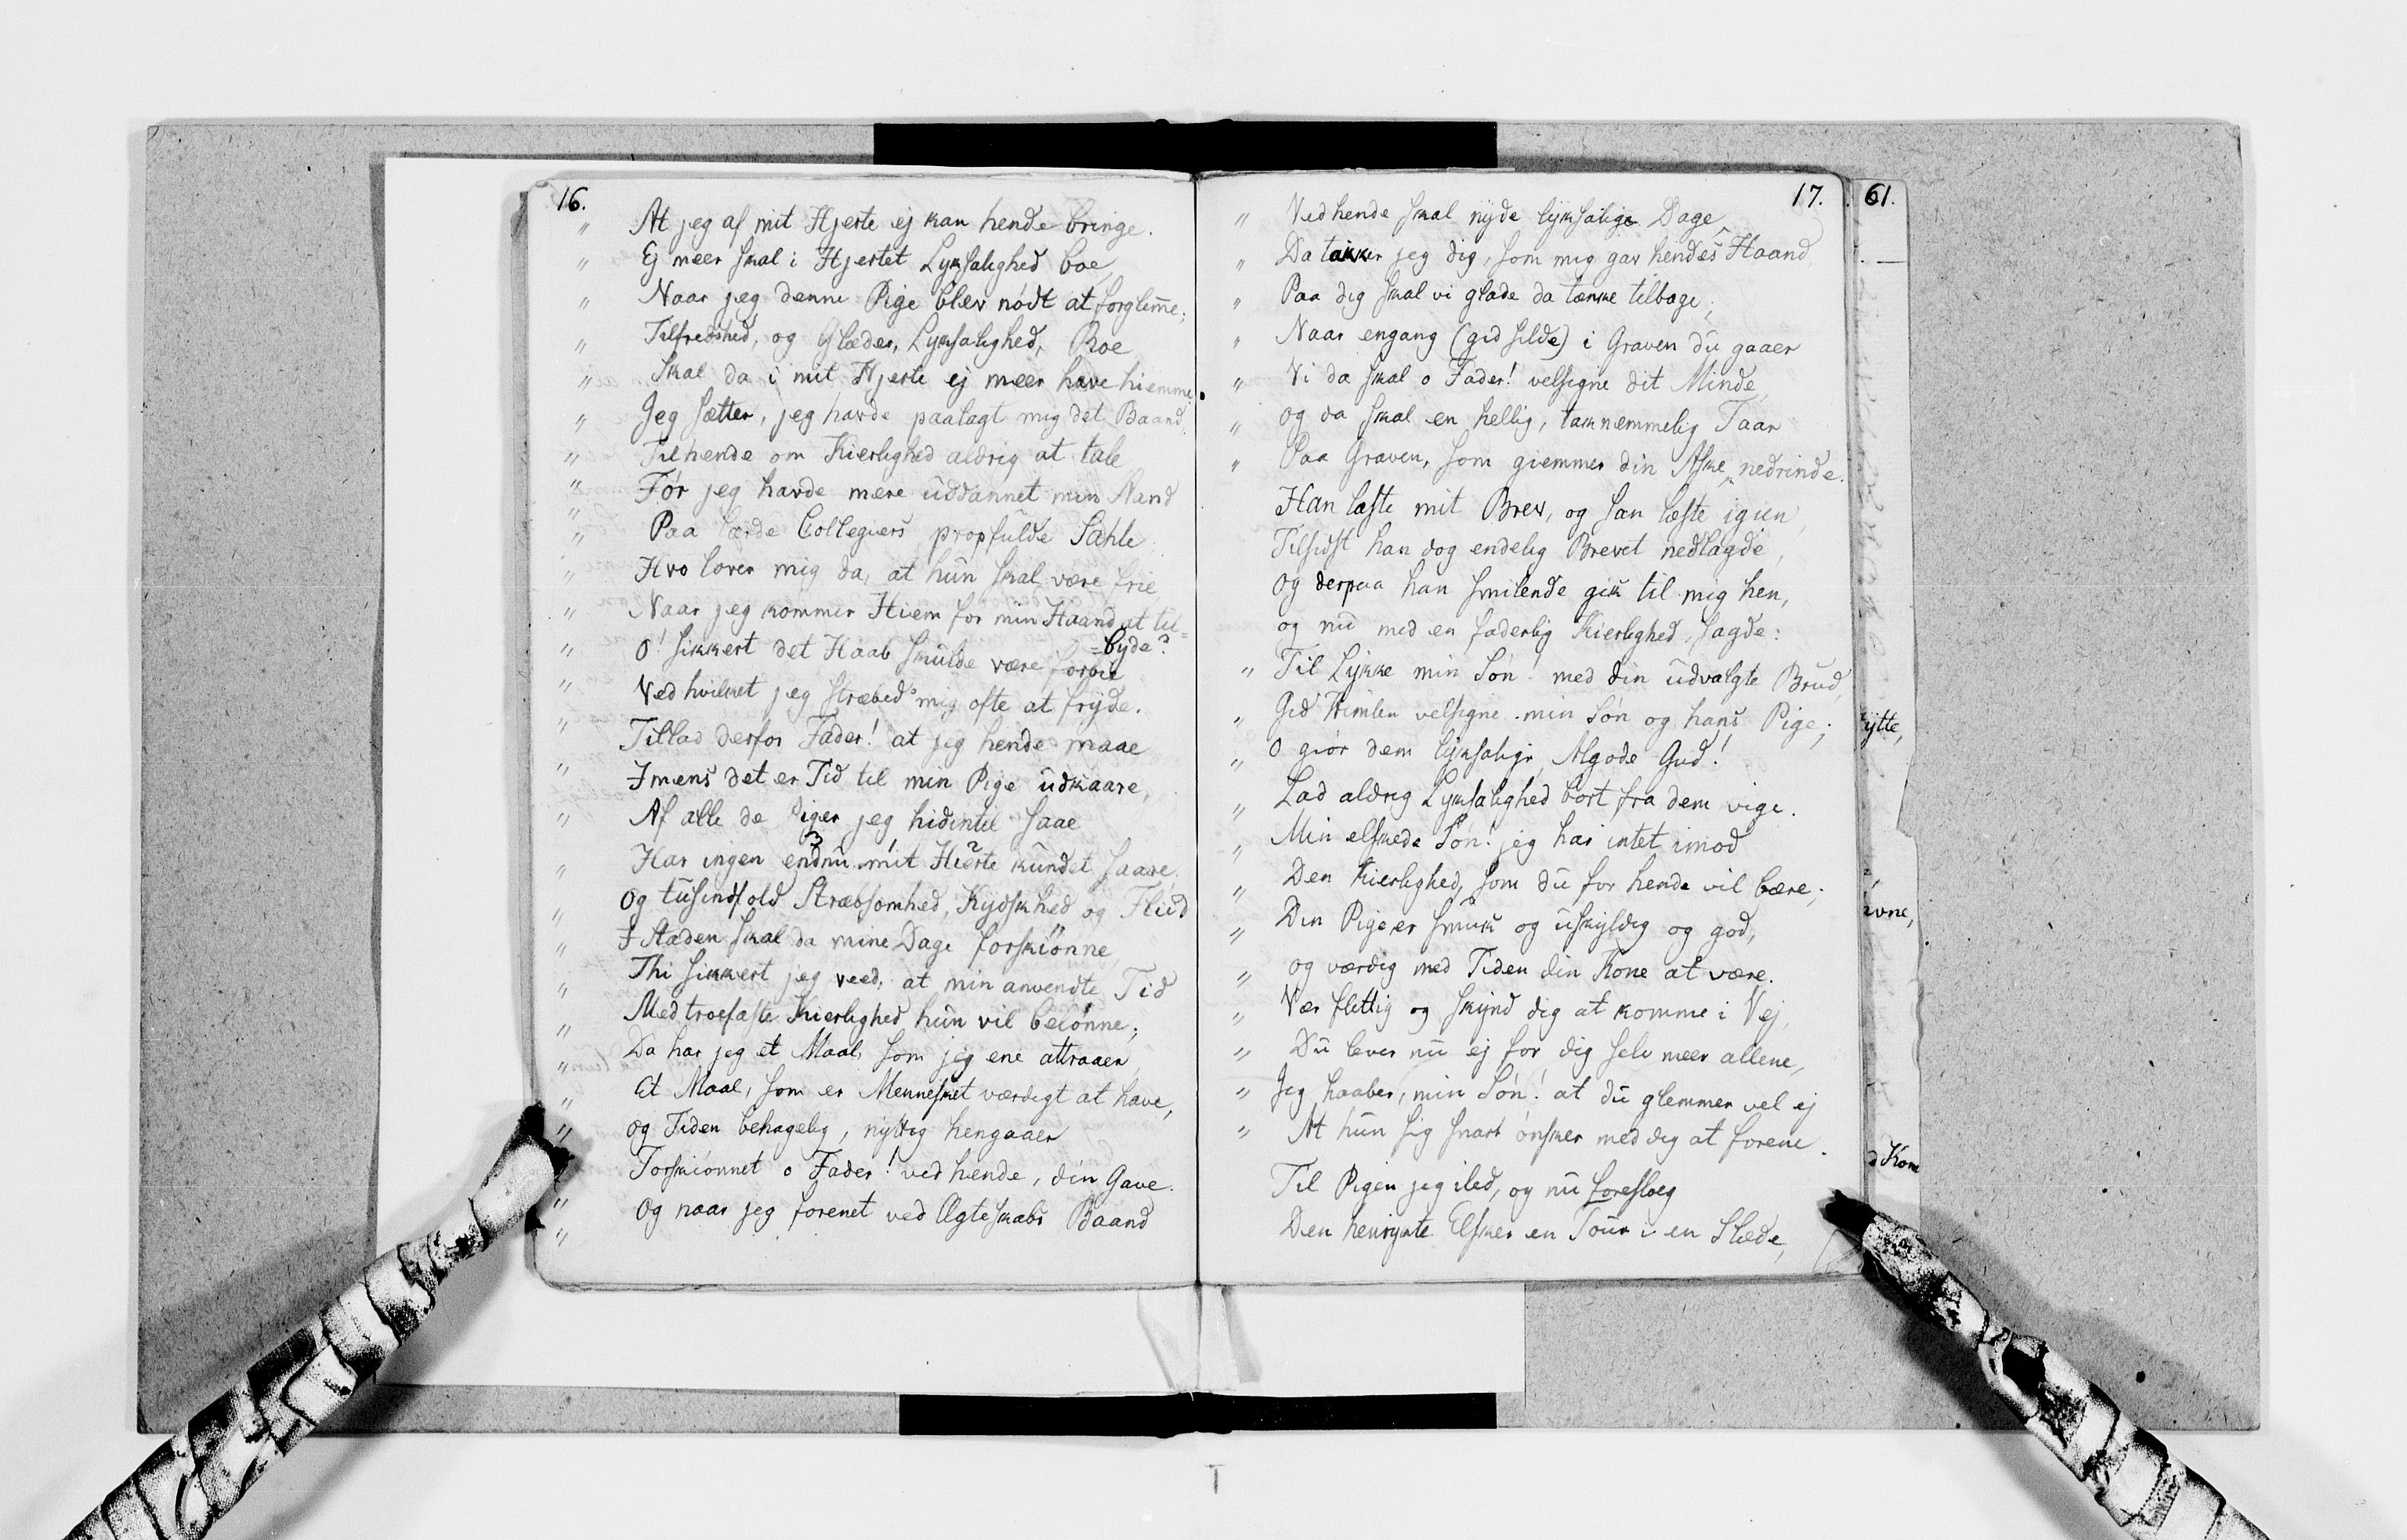 16.
" At jeg af mit Hjerte ej kan hende bringe.
" Ej meer skal i Hjertet Lyksalighed boe,
" Naar jeg denne Pige blev nödt at forglem̅e;
" Tilfredshed, og Glæder, Lyksalighed, Roe
" Skal da i mit Hjerte ej meer have hiemme.
" Jeg sætter, jeg havde paalagt mig det Baand,
" Til hende om Kierlighed aldrig at tale
" Før jeg havde mere uddannet min Aand
" Paa lærde Collegiers propfulde Sahle.
" Hvo lover mig da, at hun skal være frie,
" Naar jeg kommer Hiem for min Haand at til=
=byde?
" O! sikkert det Haab skulde være forbie
" Ved hvilket jeg stræbed' mig ofte at fryde.
" Tillad derfor Fader! at jeg hende maae
" Imens det er Tid til min Pige udkaare,
" Af alle de Piger jeg hidintil saae
" Har ingen endnu mit Hierte kundet saare.
3 1 2
" Og tusindfold Stræbsomhed, Kydskhed og Fliid
" I Staden skal da mine Dage forskiönne,
" Thi sikkert jeg veed, at min anvendte Tid
" Med troefaste Kierlighed hun vil belönne;
" Da har jeg et Maal, som jeg ene attraaer,
" Et Maal, som er Mennesket værdigt at have,
" Og Tiden behagelig, nyttig hengaaer
" Forskiönnet o Fader! ved hende, din Gave.
" Og naar jeg forenet ved Ægteskabs Baand
17.
" Ved hende skal nyde lyksalige Dage,
" Da takker jeg dig, som mig gav hendes Haand,
" Paa dig skal vi glade da tænke tilbage;
" Naar engang (gid silde) i Graven du gaaer
" Vi da skal o Fader! velsigne dit Minde,
" og da skal en hellig, taknemmelig Taar
" Paa Graven, som giemmer din Aske, nedrinde.
Han læste mit Brev, og han læste igien,
Tilsidst han dog endelig Brevet nedlagde,
Og derpaa han smilende gik til mig hen,
og nu med en faderlig Kierlighed sagde:
" Til Lykke min Sön! med din udvalgte Brud,
" Gid Himlen velsigne min Sön og hans Pige;
" O giör dem lyksalige, Algode Gud!
" Lad aldrig Lyksalighed bort fra dem vige.
" Min elskede Sön! jeg har intet imod
" Den Kierlighed, som du for hende vil bære;
" Din Pige er smuk og uskyldig og god,
" og værdig med Tiden din Kone at være.
" Vær flittig og skynd dig at komme i Vej,
" Du lever nu ej for dig selv meer allene,
" Jeg haaber, min Sön! at du glemmer vel ej
" At hun sig snart önsker med dig at forene.
Til Pigen jeg iled, og nu foresloeg
Den henrykte Elsker en Tour i en Slæde,
61.
ytte,
evne,
d Kone